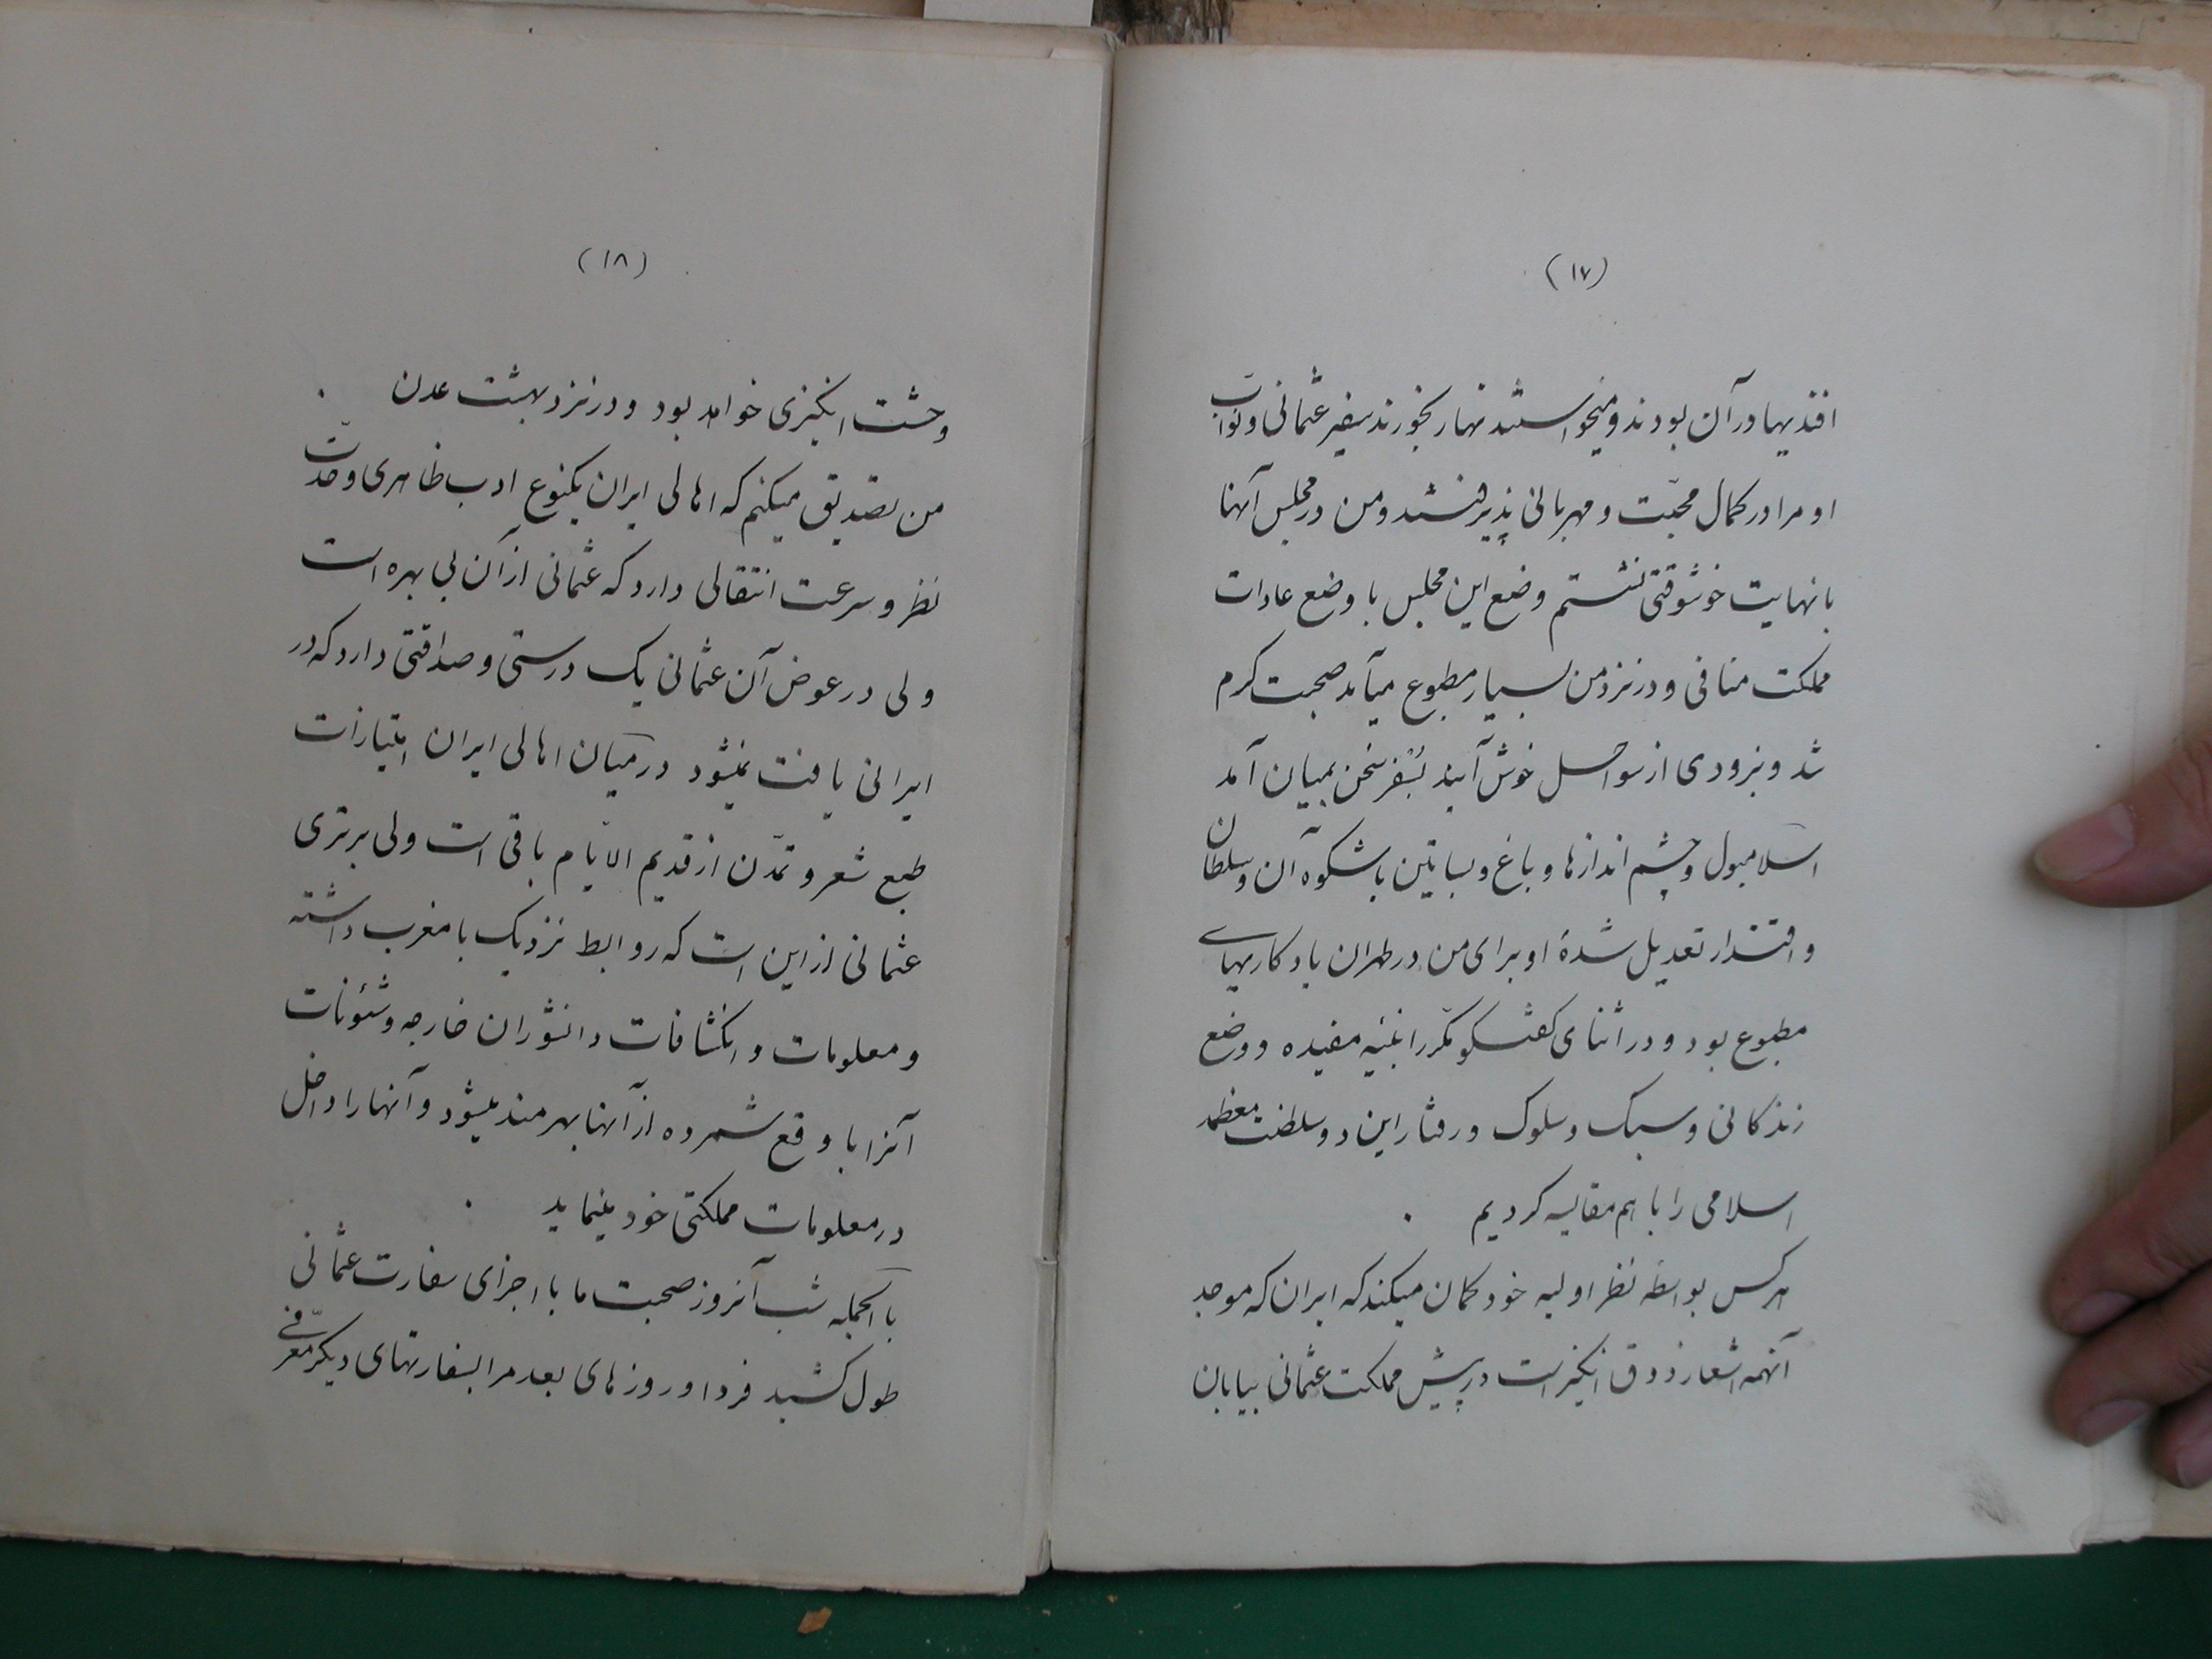 (۱۷)
افندیها در آن بودند و میخواستند نهار بخورند سفیر عثمانی و نواب
او مرا در کمال محبّت و مهربانی پذیرفتند و من در مجلس آنها
با نهایت خوشوقتی نشستم وضع این مجلس با وضع عادات
مملکت منافی و در نزد من بسیار مطبوع میآمد صحبت گرم
شد و بزودی از سواحل خوش آیند بسفر سخن بمیان آمد
اسلامبول و چشم اندازها و باغ و بساتین باشکوه آن و سلطان
و اقتدار تعدیل شدهٔ او برای من در طهران یادگاریهای
مطبوع بود و در اثنای گفتگو مکرر ابنیه مفیده و وضع
زندگانی و سبک و سلوک و رفتار این دو سلطنت معظم
اسلامی را با هم مقایسه کردیم .
هر کس بواسطه نظر اولیه خود گمان میکند که ایران که موجد
آنهمه اشعار ذوق انگیز است در پیش مملکت عثمانی بیابان
(۱۸)
وحشت انگیزی خواهد بود و در نزد بهشت عدن .
من تصدیق میکنم که اهالی ایران یکنوع ادب ظاهری و حدّت
نظر و سرعت انتقالی دارد که عثمانی از آن بی بهره است
ولی در عوض آن عثمانی یک درستی و صداقتی دارد که در
ایرانی یافت نمیشود در میان اهالی ایران امتیازات
طبع شعر و تمدّن از قدیم الایّام باقی است ولی برتری
عثمانی از این است که روابط نزدیک با مغرب داشته
و معلومات و انکشافات دانشوران خارجه و شئونات
آنرا با وقع شمرده از آنها بهرمند میشود و آنها را داخل
در معلومات مملکتی خود مینماید .
با الجمله شب آنروز صحبت ما با اجزای سفارت عثمانی
طول کشید فردا و روزهای بعد مرا بسفارتهای دیگر معرّفی